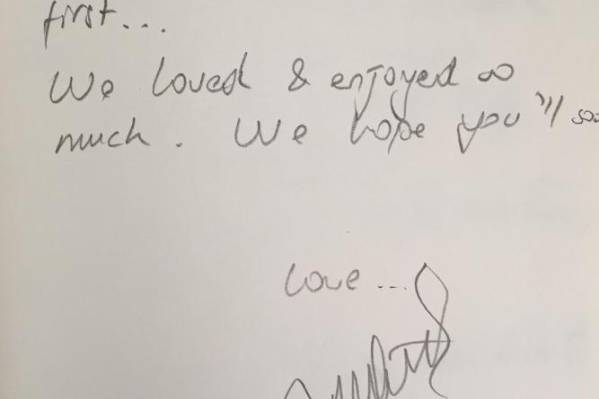 first...
We loved & enjoyed so
much. We hope you'll
Love...